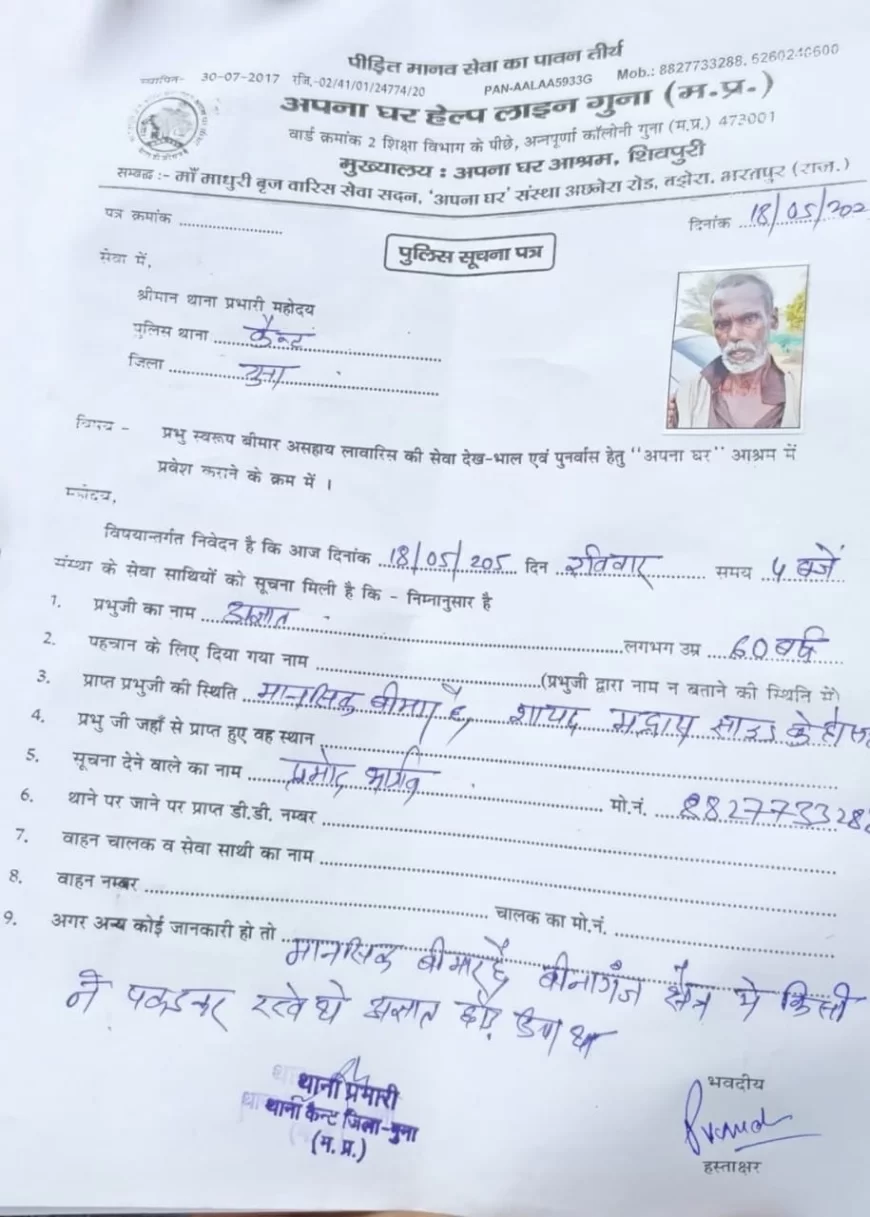 पीड़ित मानव सेवा का पावन तीर्थ
स्थापित- 30-07-2017 रजि,-02/41/01/24774/20 PAN-AALAA5933G Mob.: 8827733288, 6260246600
अपना घर हेल्प लाइन गुना (म.प्र.)
वार्ड क्रमांक 2 शिक्षा विभाग के पीछे, अन्नपूर्णा कॉलोनी गुना (म.प्र.) 473001
मुख्यालय : अपना घर आश्रम, शिवपुरी
सम्बद्ध :- माँ माधुरी बृज वारिस सेवा सदन, 'अपना घर' संस्था अछनेरा रोड, बझेरा, भरतपुर (राज.)
पत्र क्रमांक
दिनांक 18/05/202
पुलिस सूचना पत्र
सेवा में,
श्रीमान थाना प्रभारी महोदय
पुलिस थाना कैन्ट
जिला गुना
विषय - प्रभु स्वरूप बीमार असहाय लावारिस की सेवा देख-भाल एवं पुनर्वास हेतु "अपना घर" आश्रम में
प्रवेश कराने के क्रम में ।
महोदय,
विषयान्तर्गत निवेदन है कि आज दिनांक 18/05/205 दिन रविवार समय 4 बजे
संस्था के सेवा साथियों को सूचना मिली है कि - निम्नानुसार है
1. प्रभुजी का नाम अज्ञात लगभग उम्र 60 वर्ष
2. पहचान के लिए दिया गया नाम (प्रभुजी द्वारा नाम न बताने की स्थिति में)
3. प्राप्त प्रभुजी की स्थिति मानसिक बीमार है, शायद मद्रास साइड के
4. प्रभु जी जहाँ से प्राप्त हुए वह स्थान
5. सूचना देने वाले का नाम प्रमोद भार्गव मो.नं. 882773328
6. थाने पर जाने पर प्राप्त डी.डी. नम्बर
7. वाहन चालक व सेवा साथी का नाम
8. वाहन नम्बर चालक का मो.नं.
9. अगर अन्य कोई जानकारी हो तो मानसिक बीमार है बीनागंज क्षेत्र मे किसी
ने पकडकर रखे थे अज्ञात
थाना प्रभारी
थाना कैन्ट जिला-गुना
(म.प्र.)
भवदीय
Pramod
हस्ताक्षर